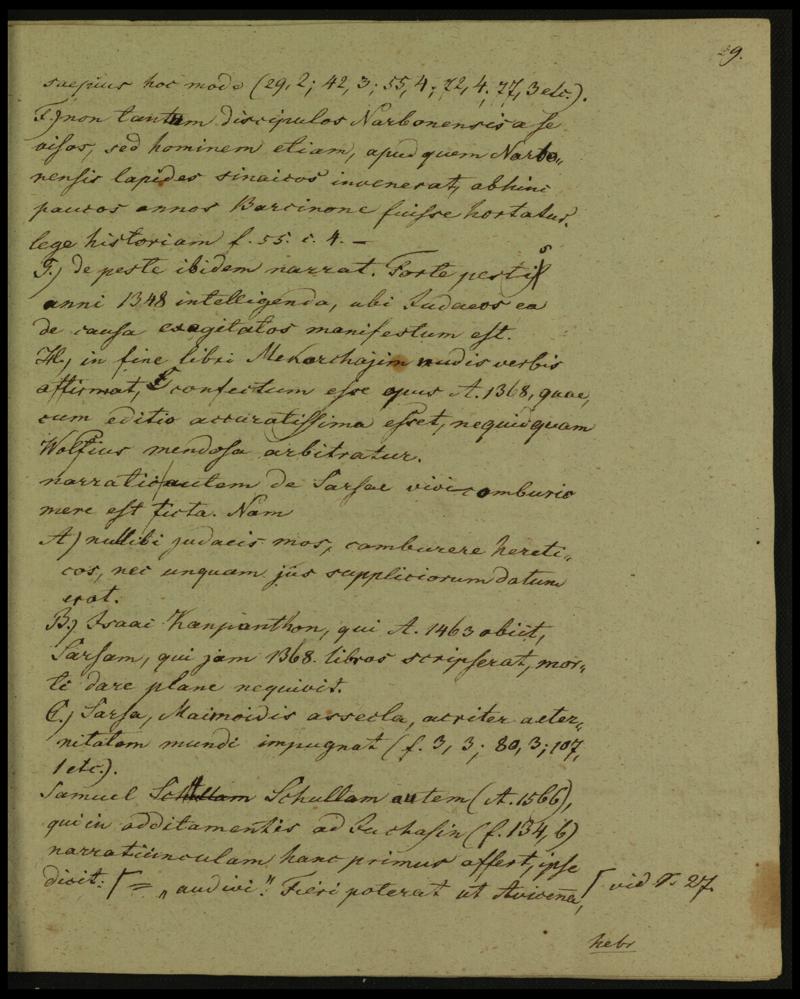 29.
saepius hoc modo (29, 2; 42, 3; 55, 4; 72, 4. 77, 3 etc.).
F.) non tantum discipulos Narbonensis a se
visos, sed hominem etiam, apud quem Narbo„
nensis lapides sinaicos invenerat, abhinc
paucos annos Barcinone fuisse hortatur.
lege historiam f. 55. c. 4. —
G.) de peste ibidem narrat. Forte pestis
anni 1348 intelligenda, ubi Judaeos ea
de causa exagitatos manifestum est.
H.) in fine libri Mekorchajim nudis verbis
affirmat, confectum esse opus A. 1368, quae,
cum editio accuratissima esset, nequidquam
Wolfius mendosa arbitratur.
narratio autem de Sarsae vivicomburio
mere est ficta. Nam
A) nullibi judaeis mos, comburere hereti„
cos, nec unquam jus suppliciorum datum
erat.
B.) Isaac Kanpanthon, qui A. 1463 obiit,
Sarsam, qui jam 1368. libros scripserat, mor„
ti dare plane nequivit.
C.) Sarsa, Maimoidis assecla, acriter aeter„
nitatem mundi impugnat (f. 3, 3; 80, 3; 107,
1 etc.).
Samuel Schullam autem (A. 1566),
qui in additamentis ad Juchasin (f. 134, b)
narratiunculam hanc primus affert, ipse
dicit: = „audivi". Fieri poterat ut Avicenna,
vid P. 27.
hebr